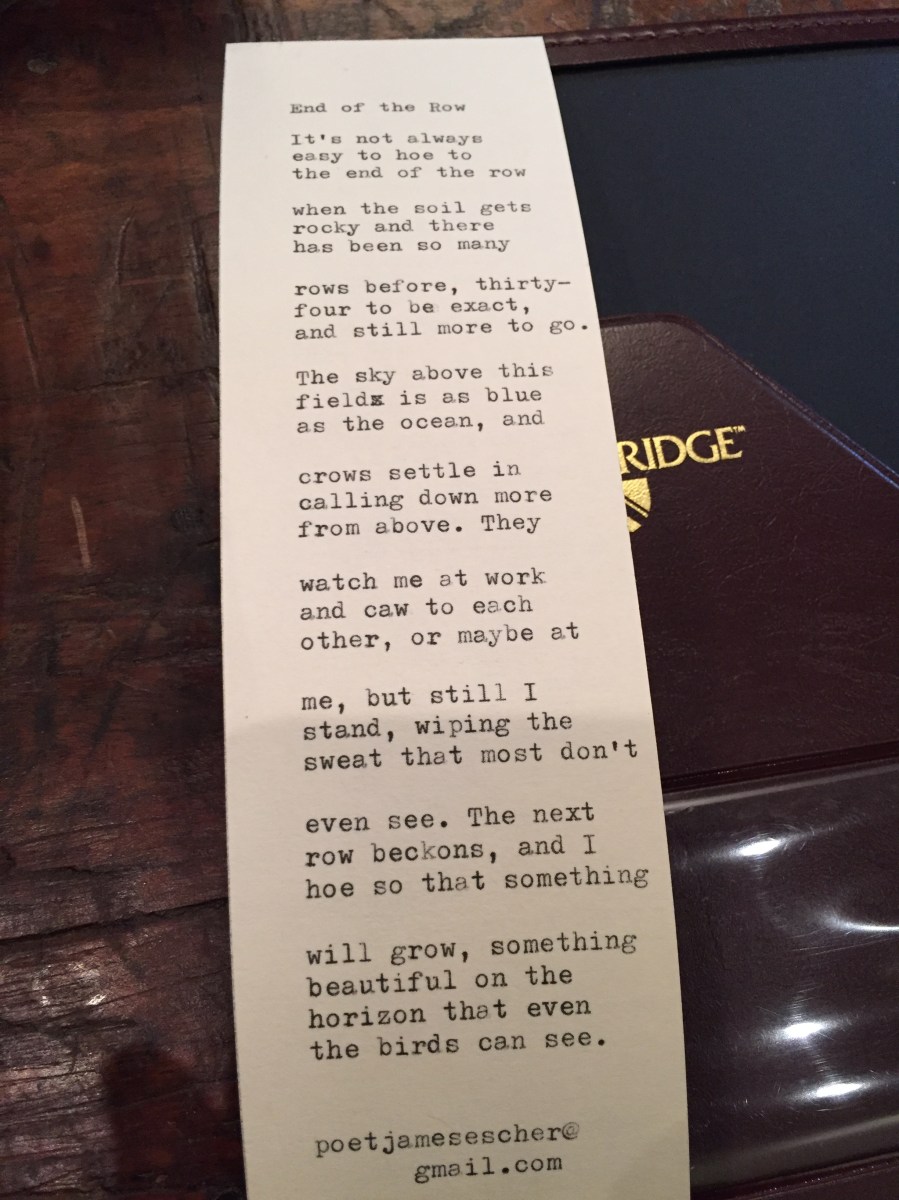 End of the Row
It's not always
easy to hoe to
the end of the row
when the soil gets
rocky and there
has been so many
rows before, thirty-
four to be exact,
and still more to go.
The sky above this
fieldx is as blue
as the ocean, and
crows settle in
calling down more
from above. They
watch me at work
and caw to each
other, or maybe at
me, but still I
stand, wiping the
sweat that most don't
even see. The next
row beckons, and I
hoe so that something
will grow, something
beautiful on the
horizon that even
the birds can see.
poetjamesescher@
gmail.com
RIDGE™